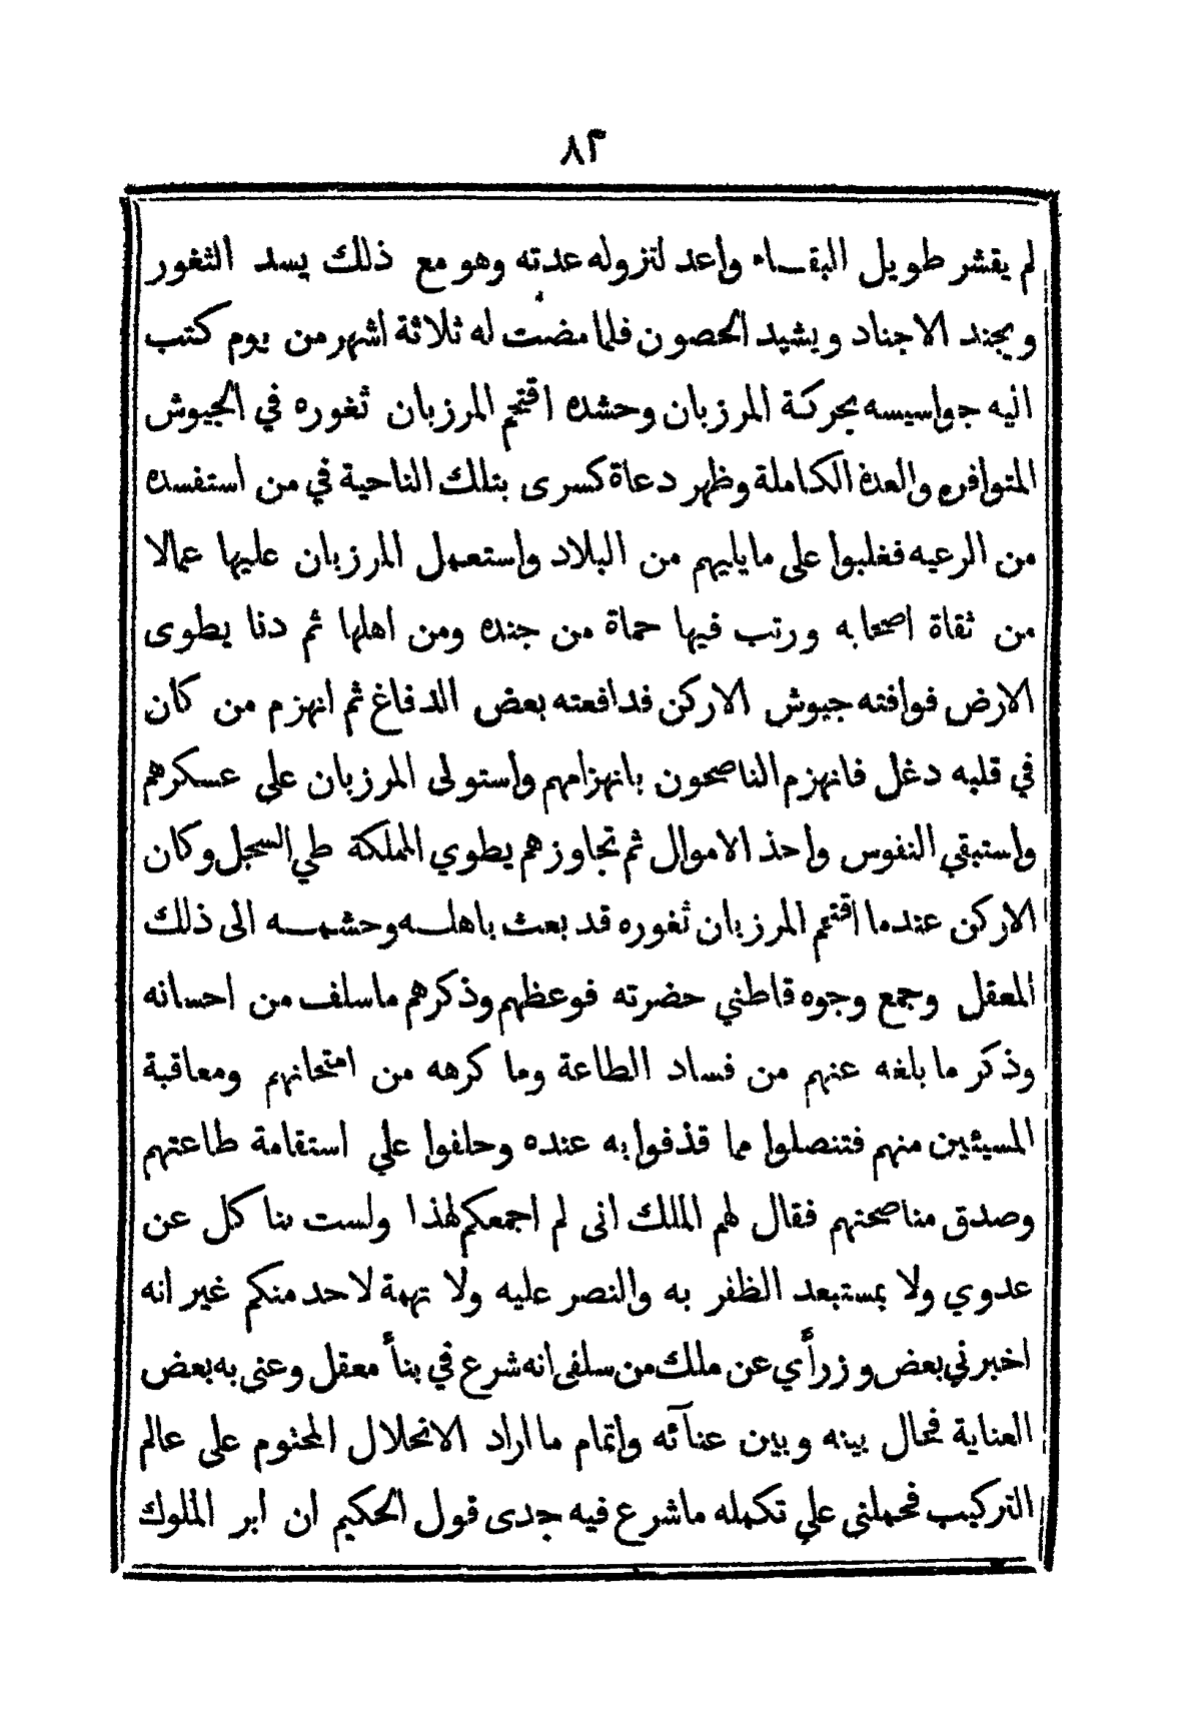 ٨٣
لم يقشر طويل البقاء واعد لنزوله عدته وهو مع ذلك يسد الثغور
ويجند الاجناد ويشيد الحصون فلما مضت له ثلاثة اشهر من يوم كتب
اليه جواسيسه بحركة المرزبان وحشده اقتحم المرزبان ثغوره في الجيوش
المتوافره والعدة الكاملة وظهر دعاة كسرى بتلك الناحية في من استفسده
من الرعيه فغلبوا على ما يليهم من البلاد واستعمل المرزبان عليها عمالا
من ثقاة اصحابه ورتب فيها حماة من جنده ومن اهلها ثم دنا يطوى
الارض فوافته جيوش الاركن فدافعته بعض الدفاغ ثم انهزم من كان
في قلبه دغل فانهزم الناصحون بانهزامهم واستولى المرزبان علي عسكرهم
واستبقي النفوس واحذ الاموال ثم تجاوزهم يطوي المملكة طي السجل وكان
الاركن عندما اقتحم المرزبان ثغوره قد بعث باهله وحشمه الى ذلك
المعقل وجمع وجوه قاطني حضرته فوعظهم وذكرهم ماسلف من احسانه
وذكر ما بلغه عنهم من فساد الطاعة وما كرهه من امتحانهم ومعاقبة
المسيئين منهم فتنصلوا مما قذفوا به عنده وحلفوا علي استقامة طاعتهم
وصدق مناصحتهم فقال لهم الملك انى لم اجمعكم لهذا ولست بناكل عن
عدوي ولا بمستبعد الظفر به والنصر عليه ولا تهمة لاحد منكم غير انه
اخبرني بعض وزرأي عن ملك من سلفى انه شرع في بنأ معقل وعنى به بعض
العناية فحال بينه وبين عنآئه واتمام ما اراد الانحلال المحتوم على عالم
التركيب فحملنى علي تكمله ماشرع فيه جدى قول الحكيم ان ابر الملوك